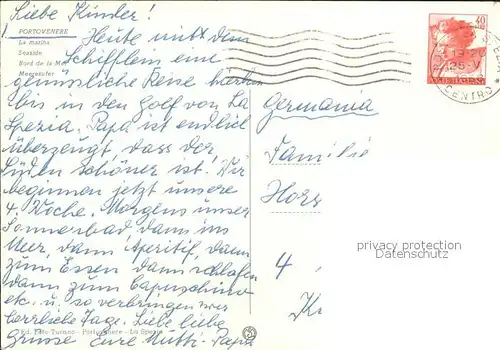 Liebe Kinder!
PORTOVENERE
La marina
Seaside
Bord de la Mer
Meeresufer
Heute mit dem
Schifflein eine
genüssliche Reise hierher
bis in den Golf von La
Spezia. Papa ist endlich
überzeugt dass der
Süden schöner ist! Wir
beginnen jetzt unsere
4. Woche. Morgens unser
Sonnenbad dann ins
Meer, dann Aperitif, dann
zum Essen dann schlafen
dann zum Capuschino
etc. u. so verbringen wir
herrliche Tage. Liebe liebe
Grüsse Eure Mutti - Papa
Ed. Foto Turano - Portovenere - La Spezia
40
CENTRO
Germania
Familie
Hors
4
privacy protection
Datenschutz